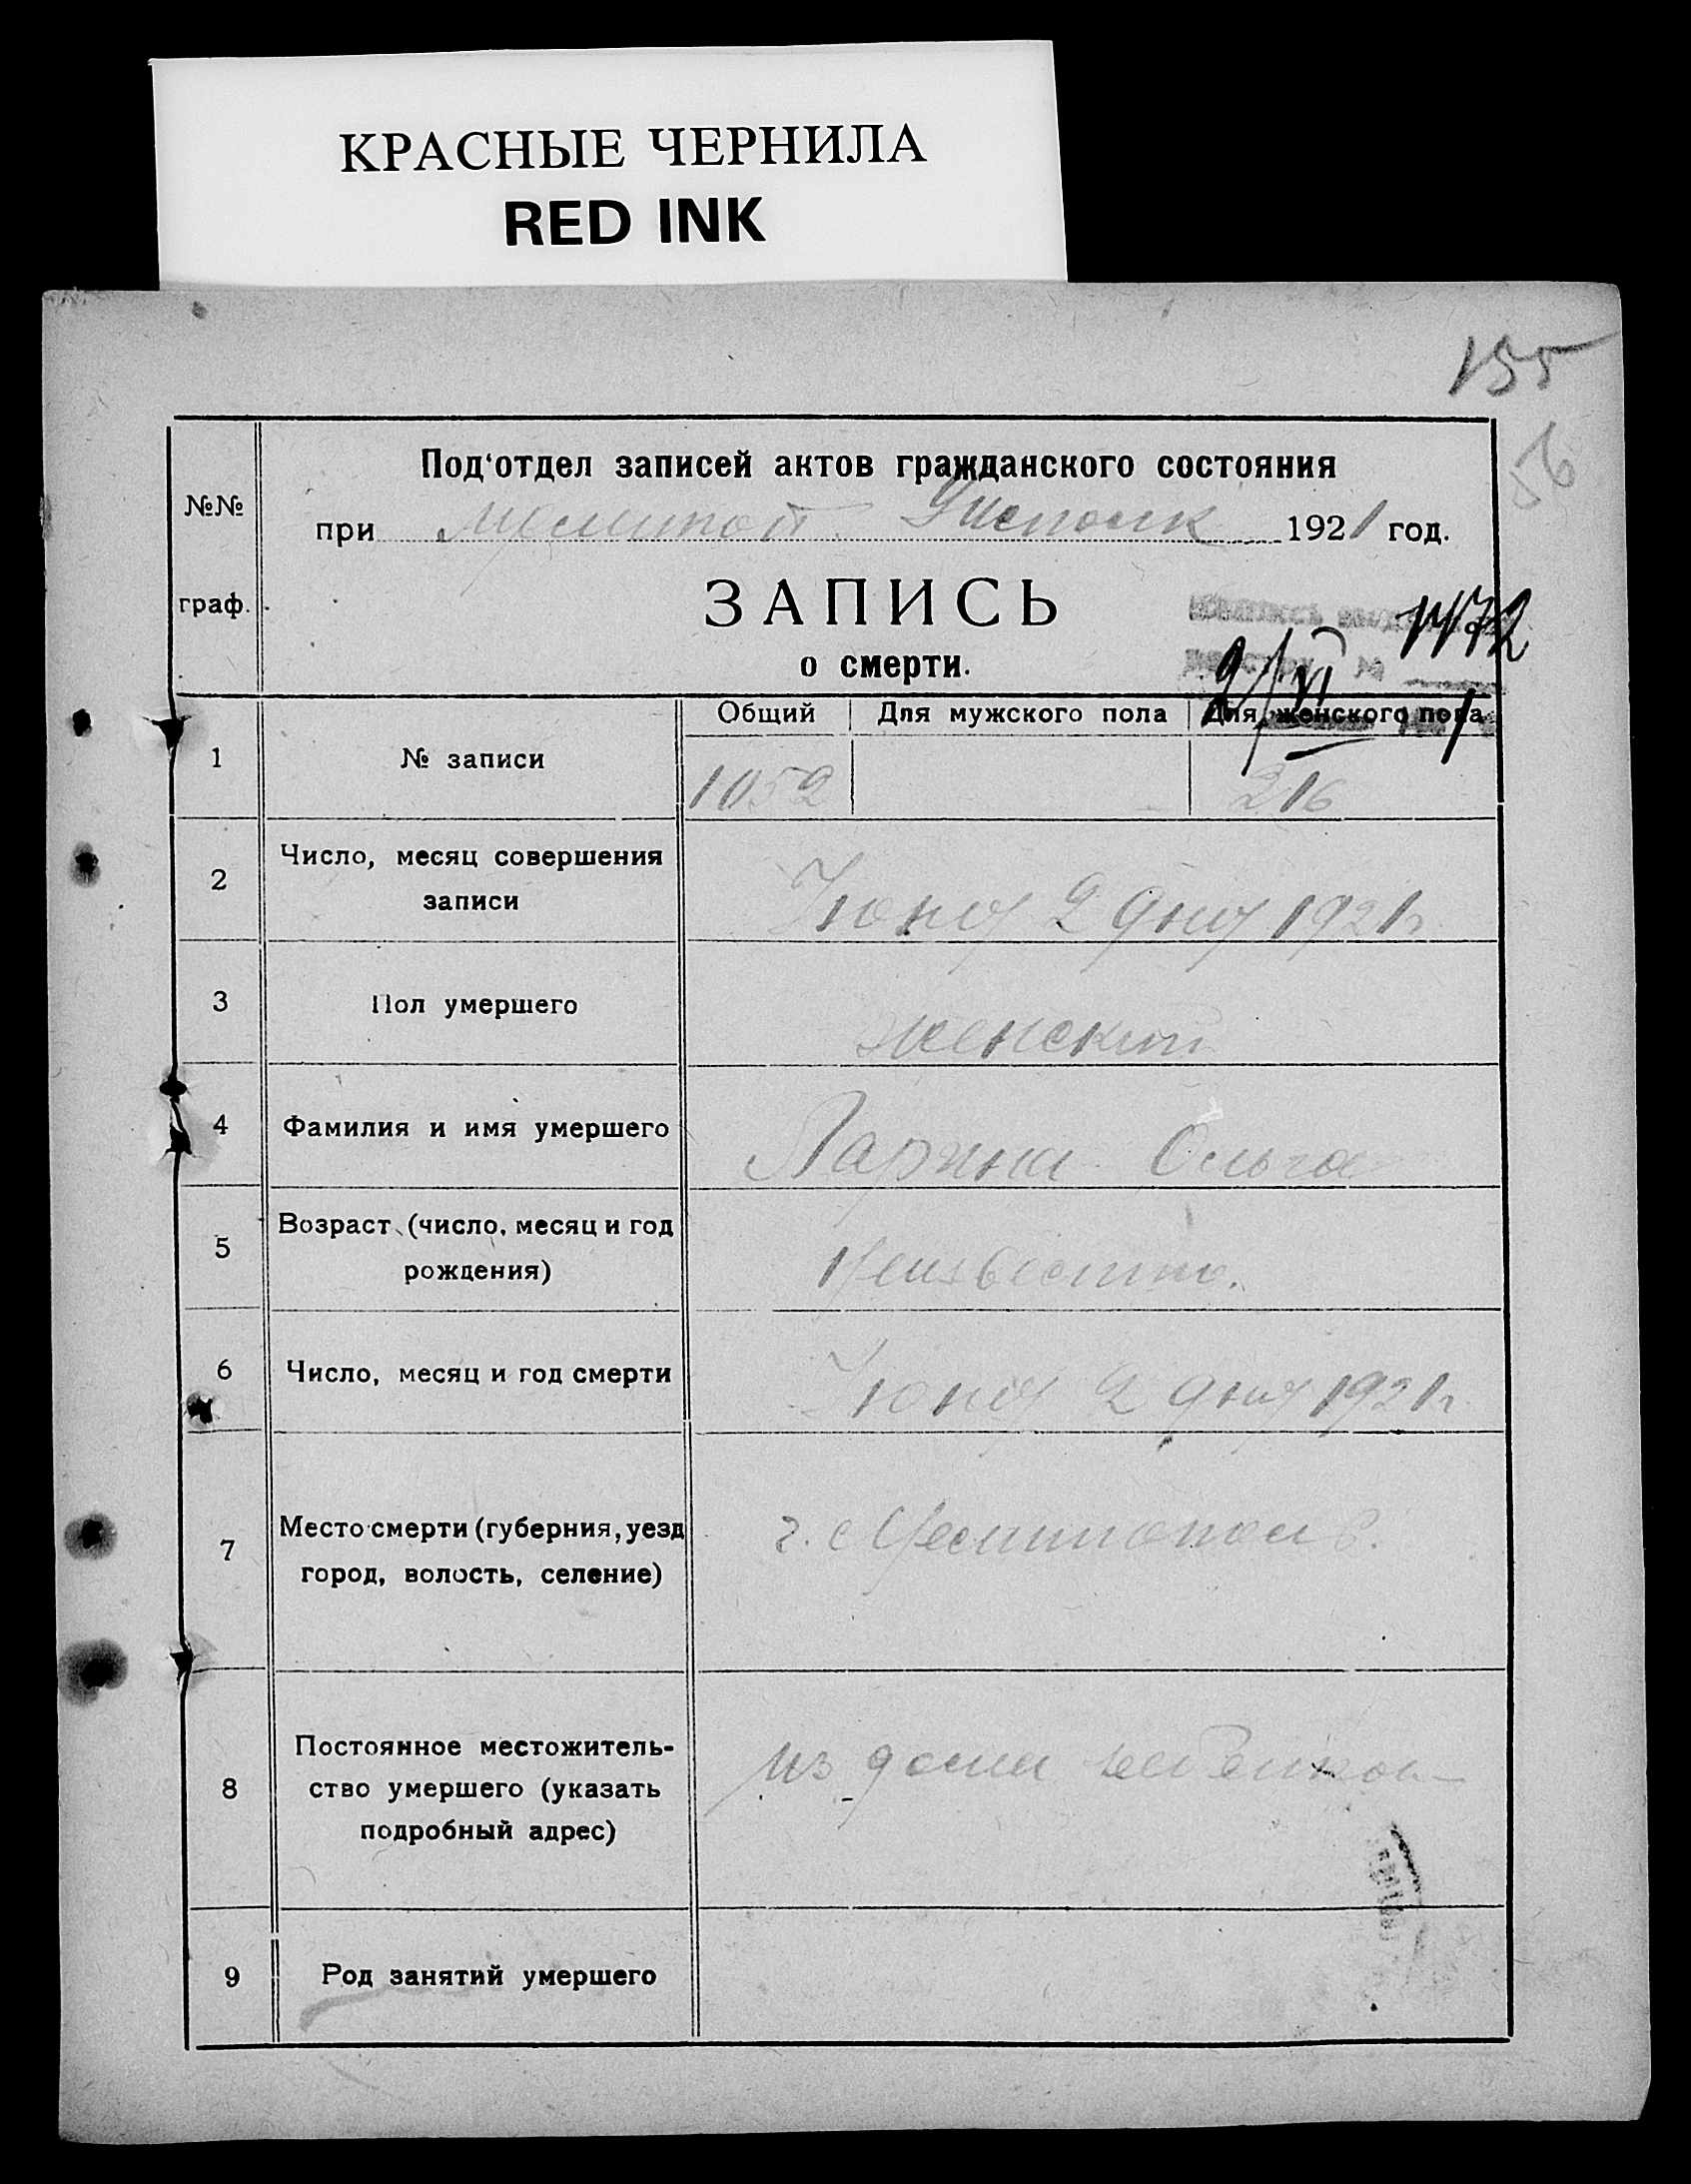 КРАСНЫЕ ЧЕРНИЛА
RED INK
155
56
Под'отдел записей актов гражданского состояния
№№
граф.
при Мелитоп. Уисполк 1921 год.
ЗАПИСЬ
о смерти.
1472
9/VI 1
Общий Для мужского пола Для женского пола
1 № записи 1052 216
2 Число, месяц совершения
записи
Июня 2 дня 1921 г.
3 Пол умершего женский
4 Фамилия и имя умершего Ларина Ольга
5 Возраст (число, месяц и год
рождения)
Неизвестно.
6 Число, месяц и год смерти Июня 2 дня 1921 г.
7 Место смерти (губерния, уезд
город, волость, селение)
г. Мелитополь.
8 Постоянное местожитель-
ство умершего (указать
подробный адрес)
из дома
9 Род занятий умершего